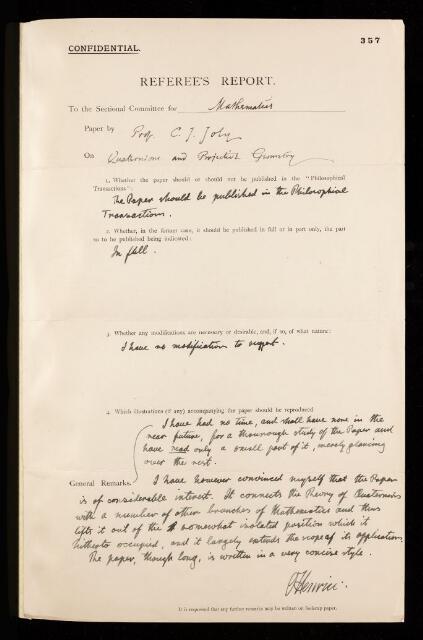 357
CONFIDENTIAL.
REFEREE'S REPORT.
To the Sectional Committee for Mathematics
Paper by Prof. C. J. Joly
On Quaternions and Projective Geometry
1. Whether the paper should or should not be published in the "Philosophical
Transactions":
The Paper should be published in the Philosophical
Transactions.
2. Whether, in the former case, it should be published in full or in part only, the part
so to be published being indicated:
In full.
3. Whether any modifications are necessary or desirable, and, if so, of what nature:
I have no modification to suggest.
4. Which illustrations (if any) accompanying the paper should be reproduced
I have had no time, and shall have none in the
near future, for a thourough study of the Paper and
have read only a small part of it, merely glancing
over the rest.
General Remarks
I have however convinced myself that the Paper
is of considerable interest. It connects the Theory of Quaternions
with a number of other branches of Mathematics and thus
lifts it out of the somewhat isolated position which it
hitherto occupied, and it largely extends the scope of its application.
The paper, though long, is written in a very concise style.
O Henrici.
It is requested that any further remarks may be written on foolscap paper.